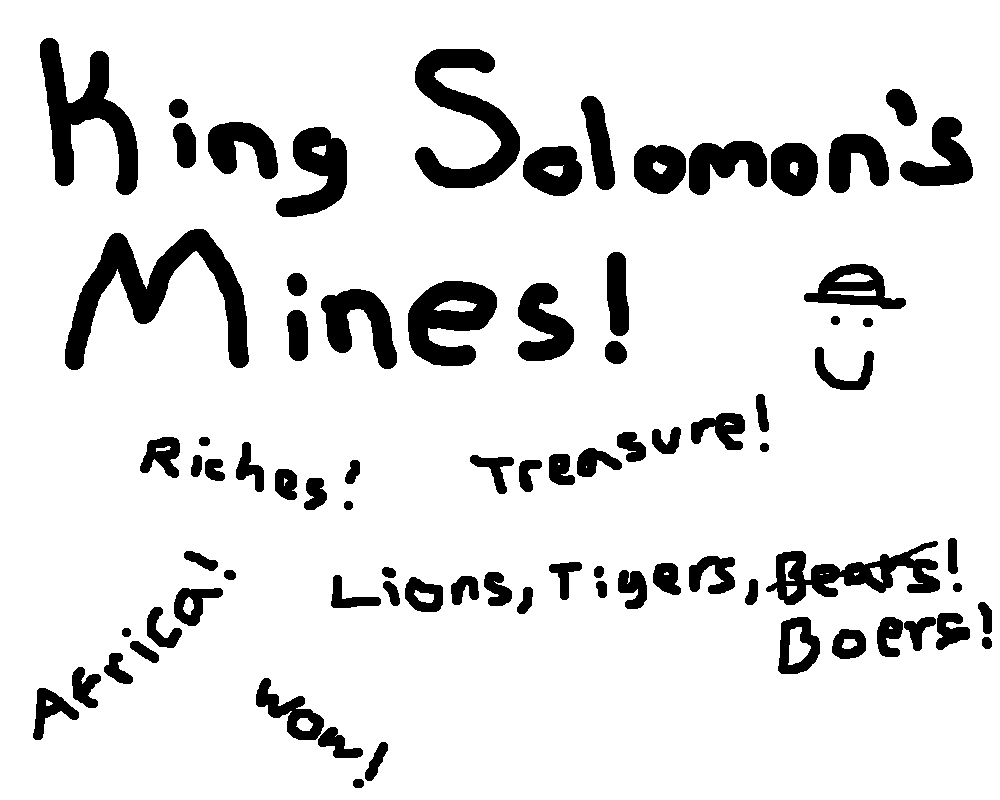 King Solomon's
Mines!
Riches!
Treasure!
Africa!
Lions, Tigers, Bears!
Boers!
Wow!